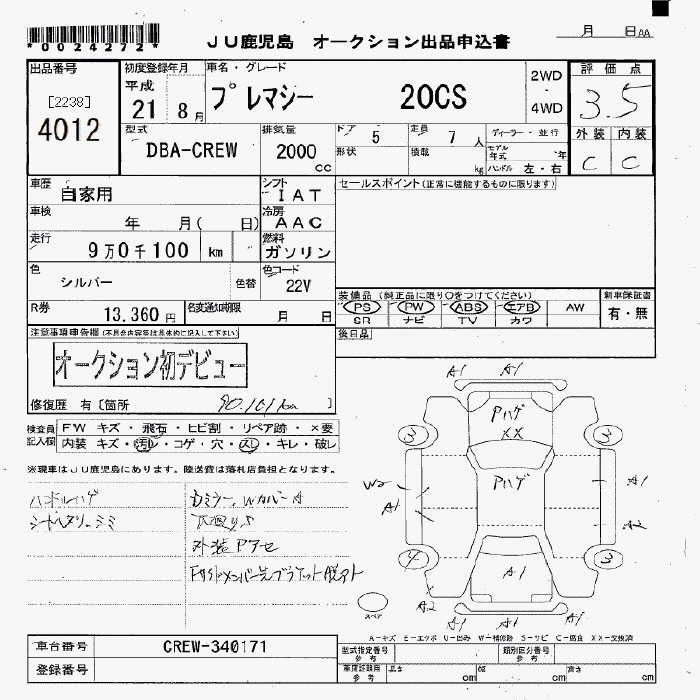 *0024272*
JU鹿児島 オークション出品申込書
月 日AA
出品番号
[2238]
4012
初度登録年月
平成
21 8月
車名・グレード
プレマシー 20CS
2WD
・
4WD
評価点
3.5
外装 内装
C C
型式
DBA-CREW
排気量
2000
cc
ドア 5
定員 7人
ディーラー・並行
形状
積載 kg
モデル年式 年
ハンドル 左・右
車歴
自家用
シフト
IAT
セールスポイント(正常に機能するものに限ります)
車検
年 月( 日)
冷房
AAC
走行
9万0千100 km
燃料
ガソリン
色
シルバー
色替
色コード
22V
R券
13,360円
名変通知期限
月 日
装備品(純正品に限り〇をつけてください)
PS PW ABS エアB AW
SR ナビ TV カワ
新車保証書
有・無
後日品
注意事項申告欄(不具合内容等は具体的に記入して下さい)
オークション初デビュー
修復歴 有〔箇所 90,101km 〕
検査員記入欄
FW キズ・飛石・ヒビ割・リペア跡・×要
内装 キズ・汚れ・コゲ・穴・スレ・キレ・破レ
※現車はJU鹿児島にあります。陸送費は落札店負担となります。
ハンドルハゲ
シートヘタリ、シミ
ドミラー、Wカバー A
下廻りS
外装アクセ
A1 A1
Pハゲ
XX
3 3
Pハゲ
W2
A1
A1
A2
4 3
A1
A2
スペア
A1 A1 A1
A-キズ E-エクボ U-凹み W-補修跡 S-サビ C-腐食 XX-交換済
車台番号
CREW-340171
登録番号
型式指定番号
参考
類別区分番号
参考
車庫証明用
参考
長さ cm
幅 cm
高さ cm